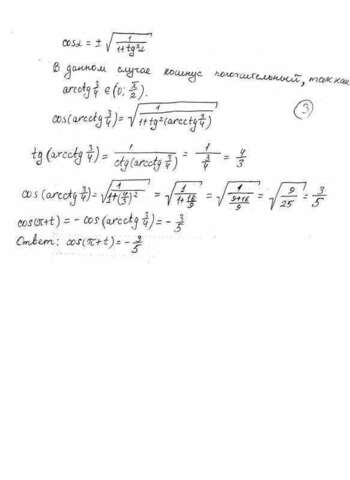 cosα = ± √(1/(1+tg²α))
В данном случае косинус положительный, так как
arcctg 3/4 ∈ (0; π/2).
③
cos(arcctg 3/4) = √(1/(1+tg²(arcctg 3/4)))
tg(arcctg 3/4) = 1/(ctg(arcctg 3/4)) = 1/(3/4) = 4/3
cos(arcctg 3/4) = √(1/(1+(4/3)²)) = √(1/(1+16/9)) = √(1/((9+16)/9)) = √(9/25) = 3/5
cos(π+t) = - cos(arcctg 3/4) = - 3/5
Ответ: cos(π+t) = - 3/5